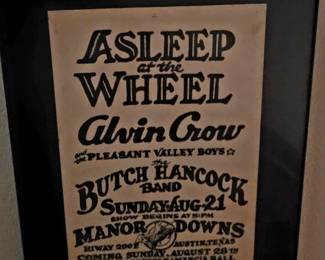 ASLEEP
at the
WHEEL
Alvin Crow
and the PLEASANT VALLEY BOYS
the
BUTCH HANCOCK
BAND
SUNDAY·AUG·21
SHOW BEGINS AT 5PM
MANOR DOWNS
HIWAY 290E AUSTIN, TEXAS
COMING SUNDAY, AUGUST 28TH
BALL